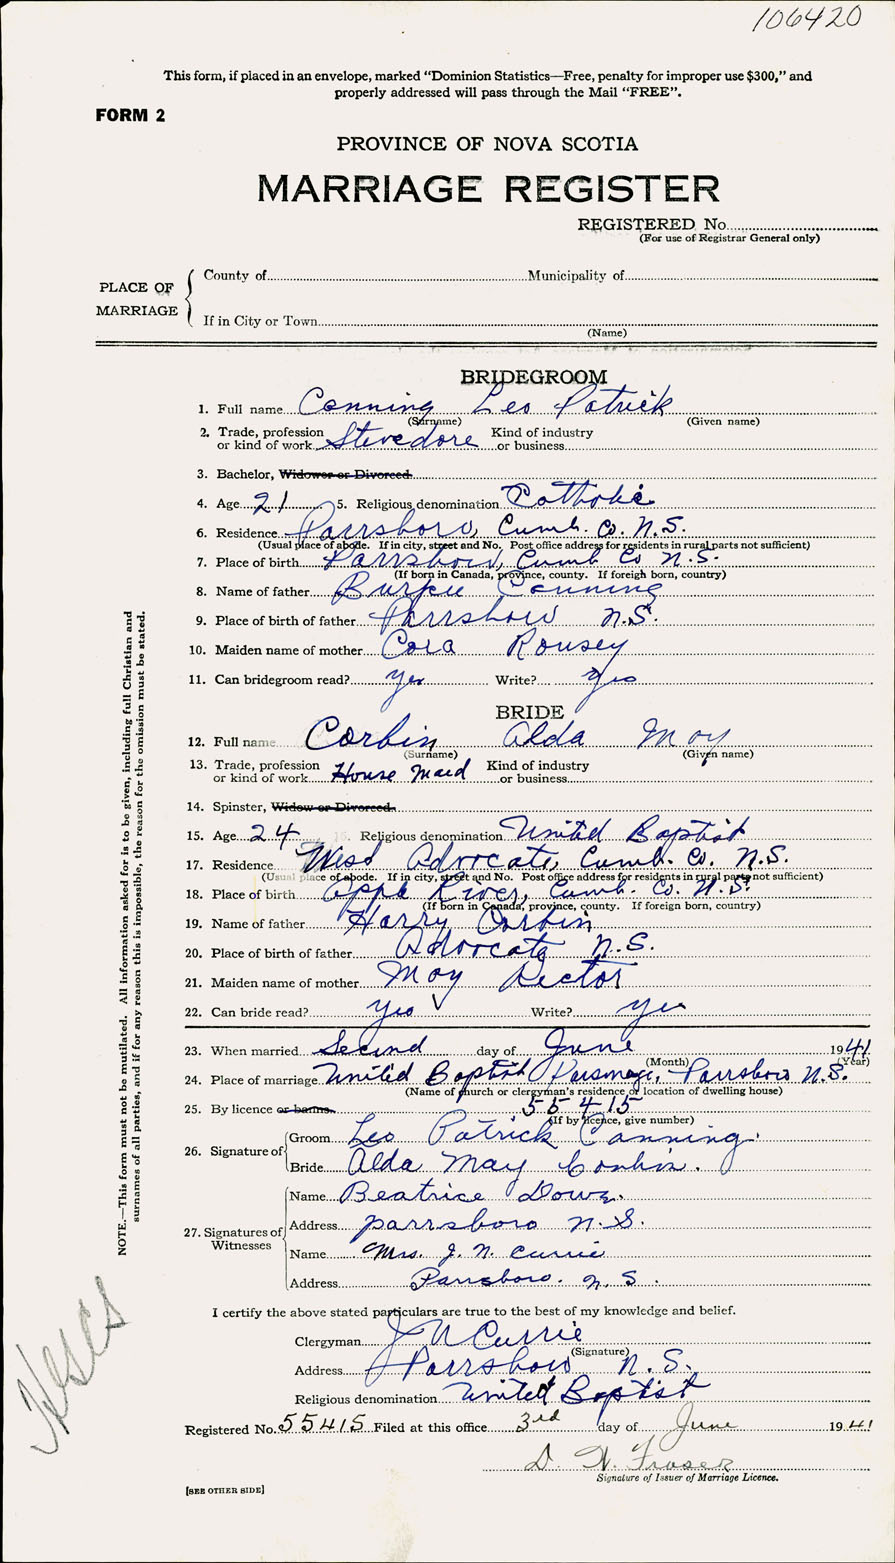 106420
This form, if placed in an envelope, marked "Dominion Statistics—Free, penalty for improper use $300," and
properly addressed will pass through the Mail "FREE".
FORM 2
PROVINCE OF NOVA SCOTIA
MARRIAGE REGISTER
REGISTERED No
(For use of Registrar General only)
PLACE OF MARRIAGE
County of Municipality of
If in City or Town
(Name)
BRIDEGROOM
1. Full name Canning Leo Patrick
(Surname) (Given name)
2. Trade, profession or kind of work Stevedore Kind of industry or business
3. Bachelor, Widower or Divorced
4. Age 21 5. Religious denomination Catholic
6. Residence Parrsboro, Cumb. Co. N.S.
(Usual place of abode. If in city, street and No. Post office address for residents in rural parts not sufficient)
7. Place of birth Parrsboro, Cumb Co N.S.
(If born in Canada, province, county. If foreigh born, country)
8. Name of father Burpee Canning
9. Place of birth of father Parrsboro N.S.
10. Maiden name of mother Cora Rousey
11. Can bridegroom read? Yes Write? Yes
BRIDE
12. Full name Corbin Alda May
(Surname) (Given name)
13. Trade, profession or kind of work House Maid Kind of industry or business
14. Spinster, Widow or Divorced
15. Age 24 Religious denomination United Baptist
17. Residence West Advocate, Cumb. Co. N.S.
(Usual place of abode. If in city, street and No. Post office address for residents in rural parts not sufficient)
18. Place of birth Apple River, Cumb. Co. N.S.
(If born in Canada, province, county. If foreign born, country)
19. Name of father Harry Corbin
20. Place of birth of father Advocate N.S.
21. Maiden name of mother May Rector
22. Can bride read? Yes Write? Yes
23. When married Second day of June 1941
(Month) (Year)
24. Place of marriage United Baptist Parsonage, Parrsboro N.S.
(Name of church or clergyman's residence or location of dwelling house)
25. By licence or banns 55415
(If by licence, give number)
26. Signature of
Groom Leo Patrick Canning.
Bride Alda May Corbin.
27. Signatures of Witnesses
Name Beatrice
Address Parrsboro N.S.
Name Mrs. J. N. Currie
Address Parrsboro. N.S.
I certify the above stated particulars are true to the best of my knowledge and belief.
Clergyman J N Currie
(Signature)
Address Parrsboro N.S.
Religious denomination United Baptist
Registered No. 55415 Filed at this office 3rd day of June 1941
D. W. Fraser
Signature of Issuer of Marriage Licence.
[SEE OTHER SIDE]
NOTE.—This form must not be mutilated. All information asked for is to be given, including full Christian and
surnames of all parties, and if for any reason this is impossible, the reason for the omission must be stated.